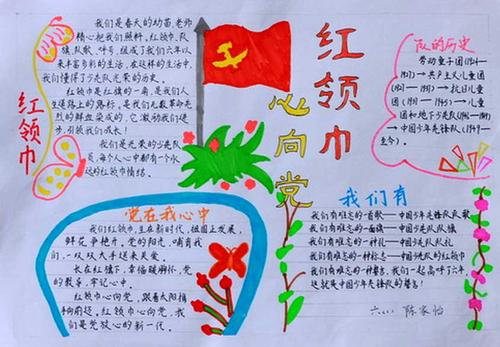 红领巾
我们是春天的幼苗,老师
精心把我们照料。红领巾、队
旗、队歌、呼号,组成了我们六年以
来丰富多彩的生活,在这样的生活中,
我们懂得了少先队光荣的历史。
红领巾是红旗的一角,是我们人
生道路上的路标,是我们无数革命先
烈的鲜血染成的,它激励我们进
步,引领我们成长!
我们是光荣的少先队
员,每个人心中都有一个永
远的红领巾情结。
红领巾
心向党
队的历史
劳动童子团(1924—
1927)→共产主义儿童团
(1927—1937)→抗日儿童
团(1937—1945)→儿童
团和地下少先队(1945—1949)
→中国少年先锋队(1949—
至今)。
党在我心中
我们红领巾,生在新时代,祖国正发展,
鲜花争艳开。党的阳光,哺育我
们,一双双大手送来关爱。
长在红旗下,幸福暖胸怀,党
的教导,牢记心中。
红领巾心向党,跟着太阳指
方向前进。红领巾心向党,我
们是党放心的新一代。
我们有
我们有难忘的一首歌——中国少年先锋队队歌
我们有难忘的一面旗——中国少先队队旗
我们有难忘的一种礼——中国少先队队礼
我们有难忘的一种标志——中国少先队的红领巾
我们有难忘的一种誓言,我们一起高呼了六年,
这就是中国少年先锋队的誓言!
陈家怡